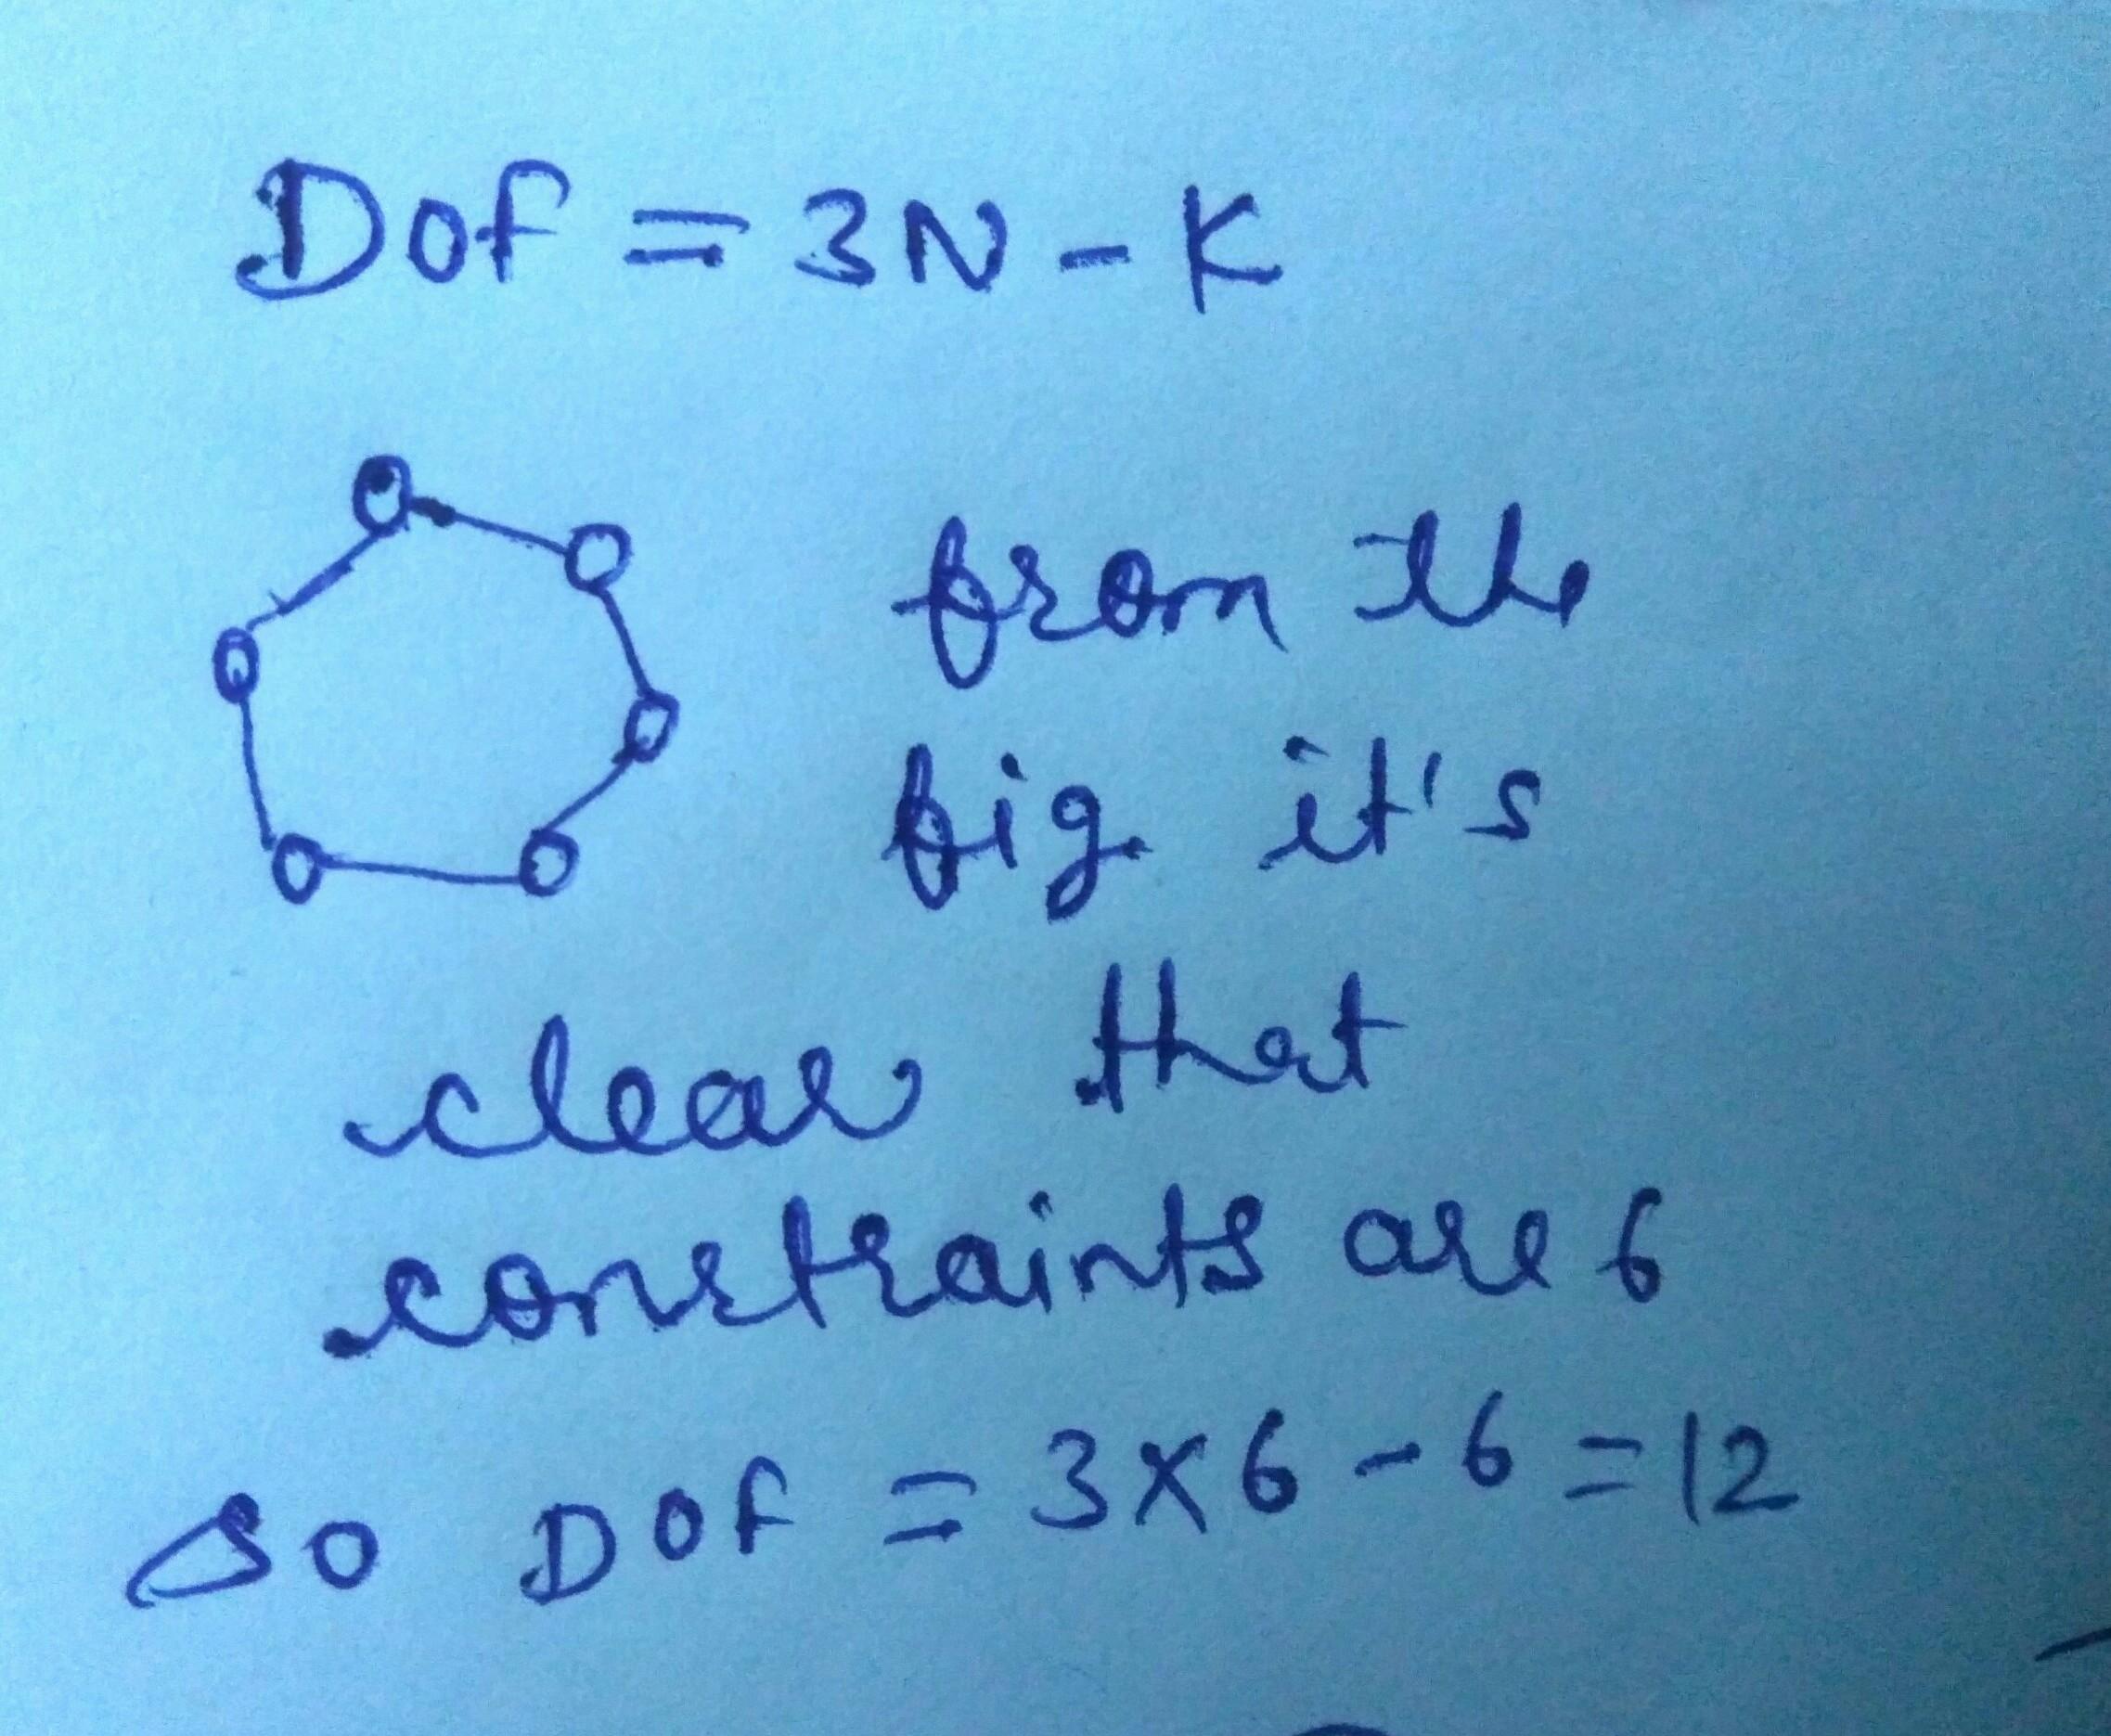 DOF = 3N - K
from the
fig. it's
clear that
constraints are 6
so DOF = 3×6-6=12